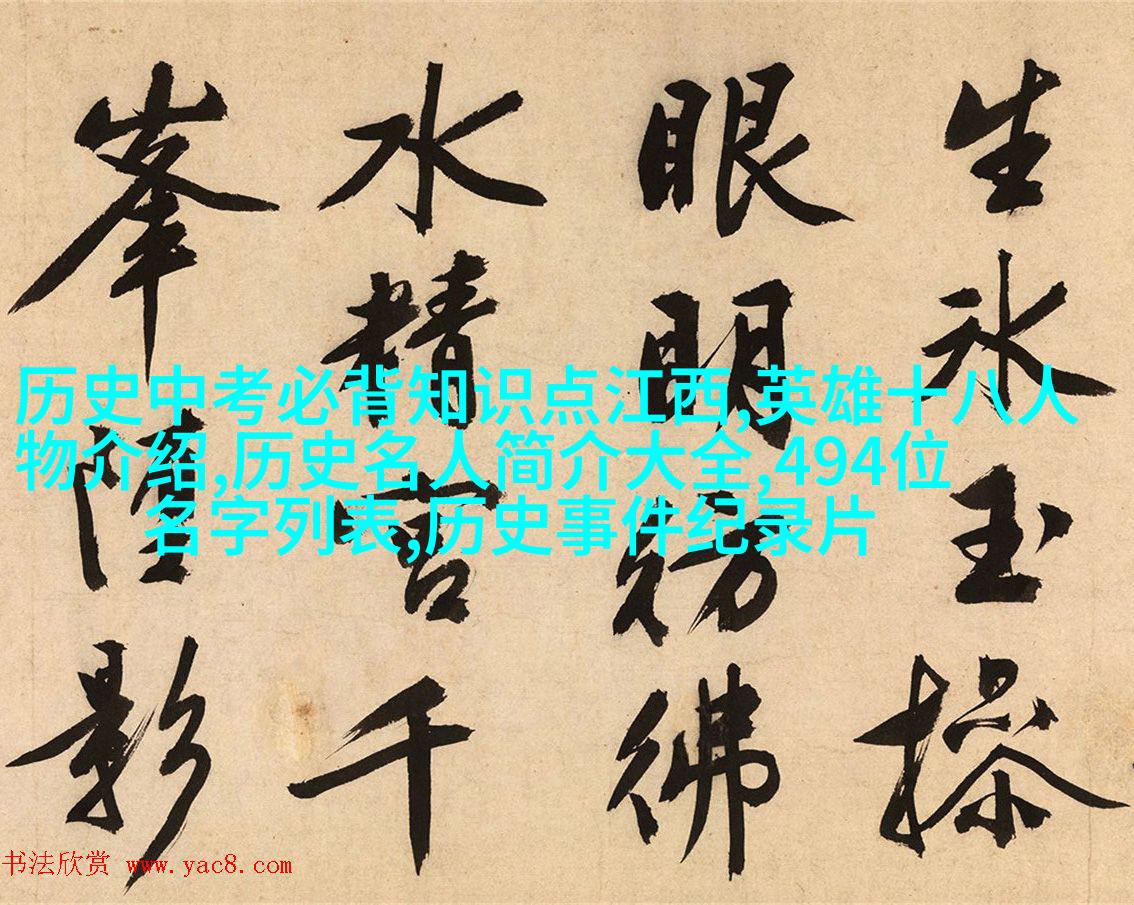 生氷玉操
眼明彷彿
水精宫千
峯影
历史中考必背知识点江西,英雄十八人
物介绍,历史名人简介大全,494位
名字列表,历史事件纪录片
书法欣赏 www.yac8.com